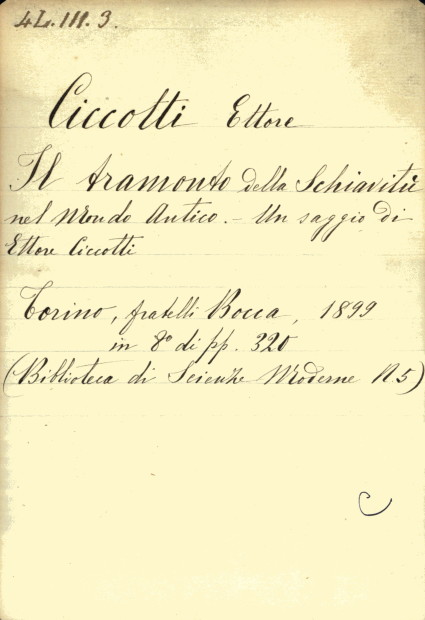 4L.III.3.
Ciccotti Ettore
Il tramonto della Schiavitù
nel Mondo Antico. - Un saggio di
Ettore Ciccotti
Torino, fratelli Bocca, 1899
in 8º di pp. 320
(Biblioteca di Scienze Moderne N 5)
C